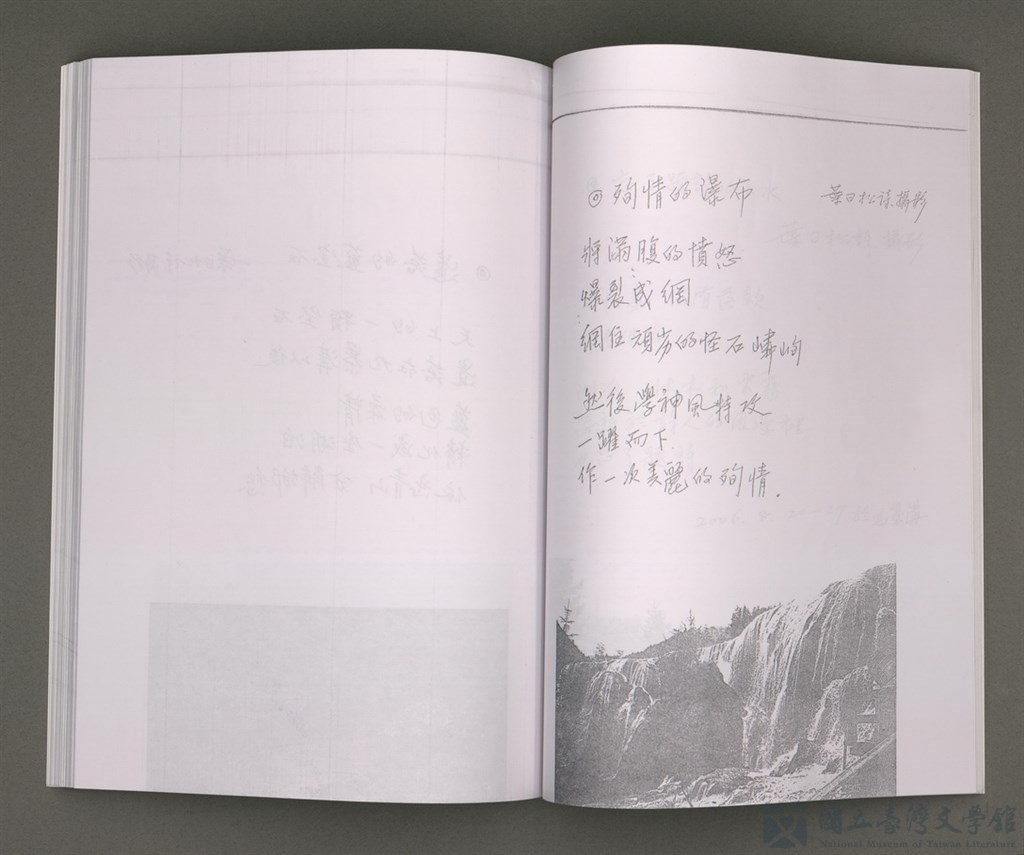 ◎殉情的瀑布
葉日松詩攝影
將滿腹的憤怒
爆裂成網
網住頑劣的怪石嶙峋
然後學神風特攻
一躍而下
作一次美麗的殉情.
國立臺灣文學館
National Museum of Taiwan Literature